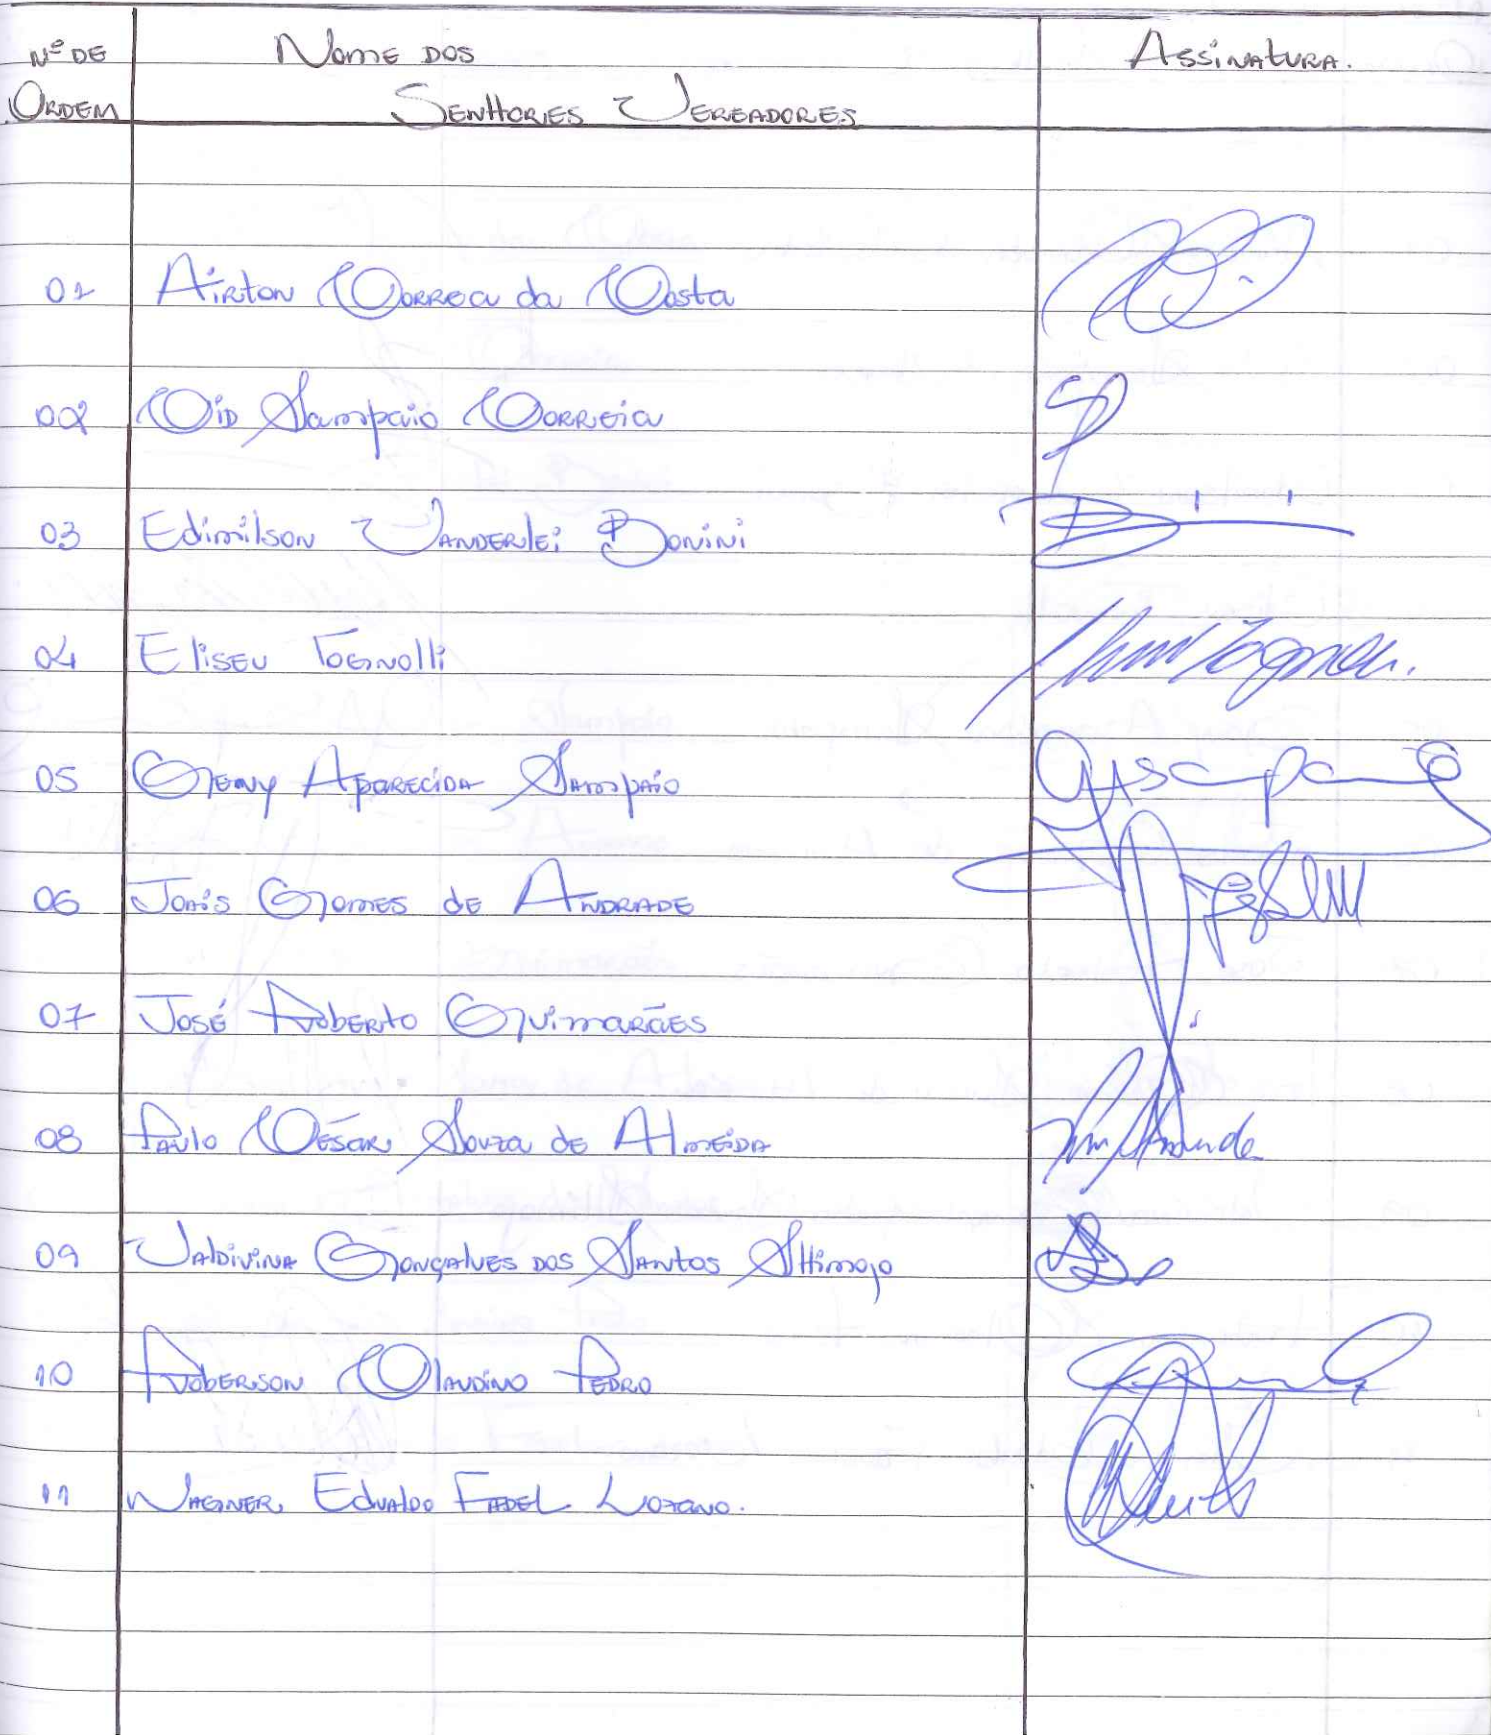 Nº DE Nome dos Assinatura.
Ordem Senhores Vereadores
01 Airton Correa da Costa
02 Cid Sampaio Correia
03 Edimilson Vanderlei Bonini
04 Eliseu Tognolli
05 Geny Aparecida Sampaio
06 Jonis Gomes de Andrade
07 José Roberto Guimarães
08 Paulo César Souza de Almeida
09 Valdivina Gonçalves dos Santos
10 Roberson Claudino Pedro
11 Wagner Edualdo Fadel Lozano.